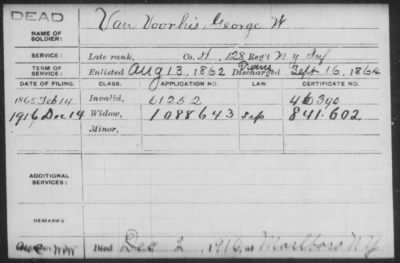 DEAD
NAME OF SOLDIER: Van Voorhis, George W.
SERVICE: Late rank, Co. H, 128 Reg't N Y Inf
TERM OF SERVICE: Enlisted Aug 13, 1862 Discharged Sept 16, 1864
DATE OF FILING. CLASS. APPLICATION NO. LAW. CERTIFICATE NO.
1865 Feb 14 Invalid, 61252 46390
1916 Dec 14 Widow, 1088643 841.602
Minor,
ADDITIONAL SERVICES:
REMARKS
Died Dec 2, 1916, at Marlboro N.Y.